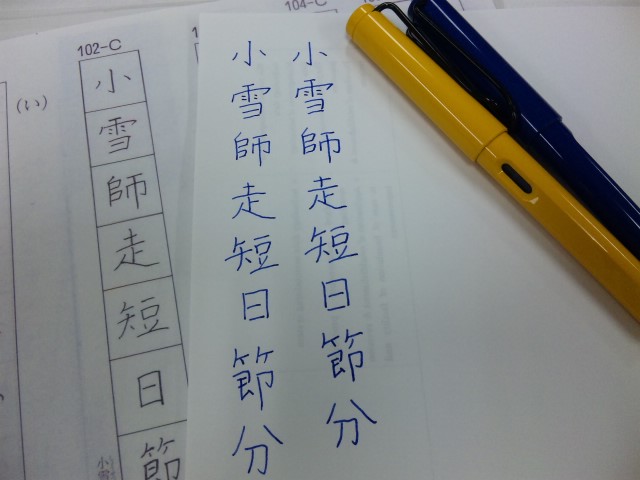 104-C
102-C
(い)
小雪師走短日節分
小雪師走短日節分
小雪師走短日節